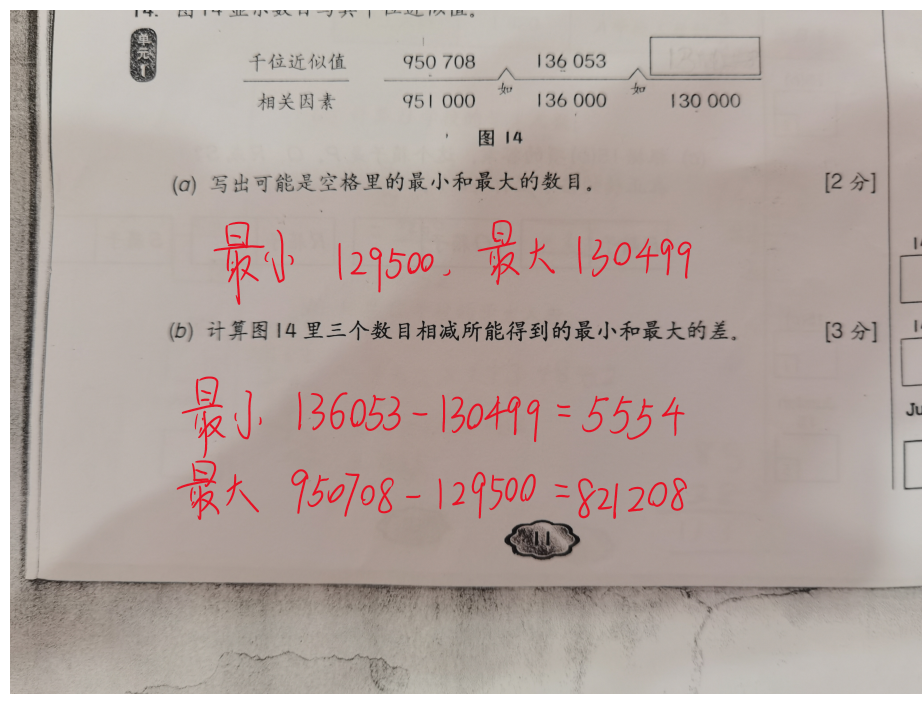 14. 图14显示数目与其千位近似值。
单元1
千位近似值 950 708 136 053
如 如
相关因素 951 000 136 000 130 000
图 14
(a) 写出可能是空格里的最小和最大的数目。 [2 分]
最小 129500, 最大 130499
(b) 计算图14里三个数目相减所能得到的最小和最大的差。 [3 分]
最小 136053-130499=5554
最大 950708-129500=821208
11
14
14
Ju